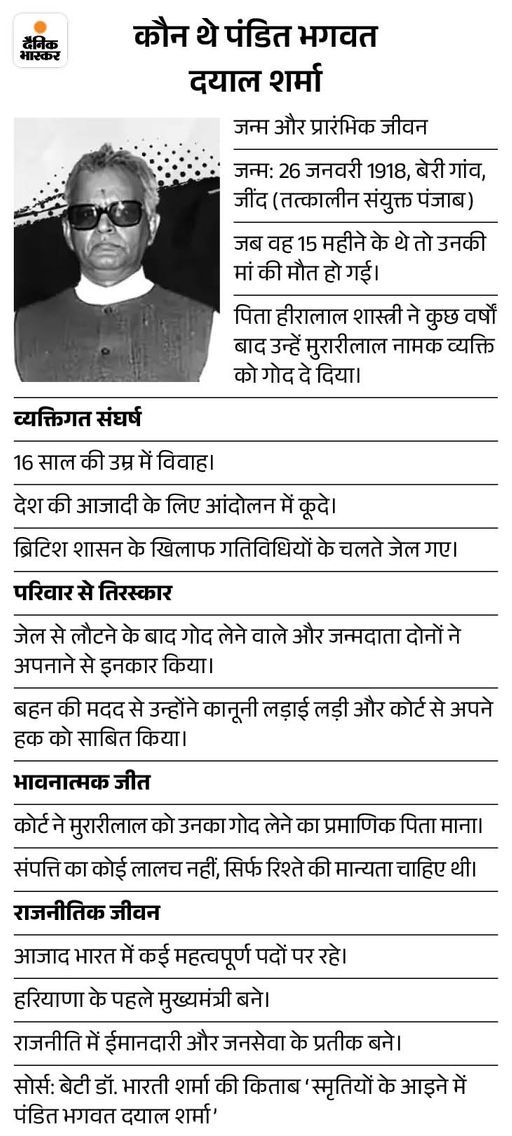 दैनिक
भास्कर
कौन थे पंडित भगवत
दयाल शर्मा
जन्म और प्रारंभिक जीवन
जन्म: 26 जनवरी 1918, बेरी गांव,
जींद (तत्कालीन संयुक्त पंजाब)
जब वह 15 महीने के थे तो उनकी
मां की मौत हो गई।
पिता हीरालाल शास्त्री ने कुछ वर्षों
बाद उन्हें मुरारीलाल नामक व्यक्ति
को गोद दे दिया।
व्यक्तिगत संघर्ष
16 साल की उम्र में विवाह।
देश की आजादी के लिए आंदोलन में कूदे।
ब्रिटिश शासन के खिलाफ गतिविधियों के चलते जेल गए।
परिवार से तिरस्कार
जेल से लौटने के बाद गोद लेने वाले और जन्मदाता दोनों ने
अपनाने से इनकार किया।
बहन की मदद से उन्होंने कानूनी लड़ाई लड़ी और कोर्ट से अपने
हक को साबित किया।
भावनात्मक जीत
कोर्ट ने मुरारीलाल को उनका गोद लेने का प्रमाणिक पिता माना।
संपत्ति का कोई लालच नहीं, सिर्फ रिश्ते की मान्यता चाहिए थी।
राजनीतिक जीवन
आजाद भारत में कई महत्वपूर्ण पदों पर रहे।
हरियाणा के पहले मुख्यमंत्री बने।
राजनीति में ईमानदारी और जनसेवा के प्रतीक बने।
सोर्स: बेटी डॉ. भारती शर्मा की किताब ‘स्मृतियों के आइने में
पंडित भगवत दयाल शर्मा’